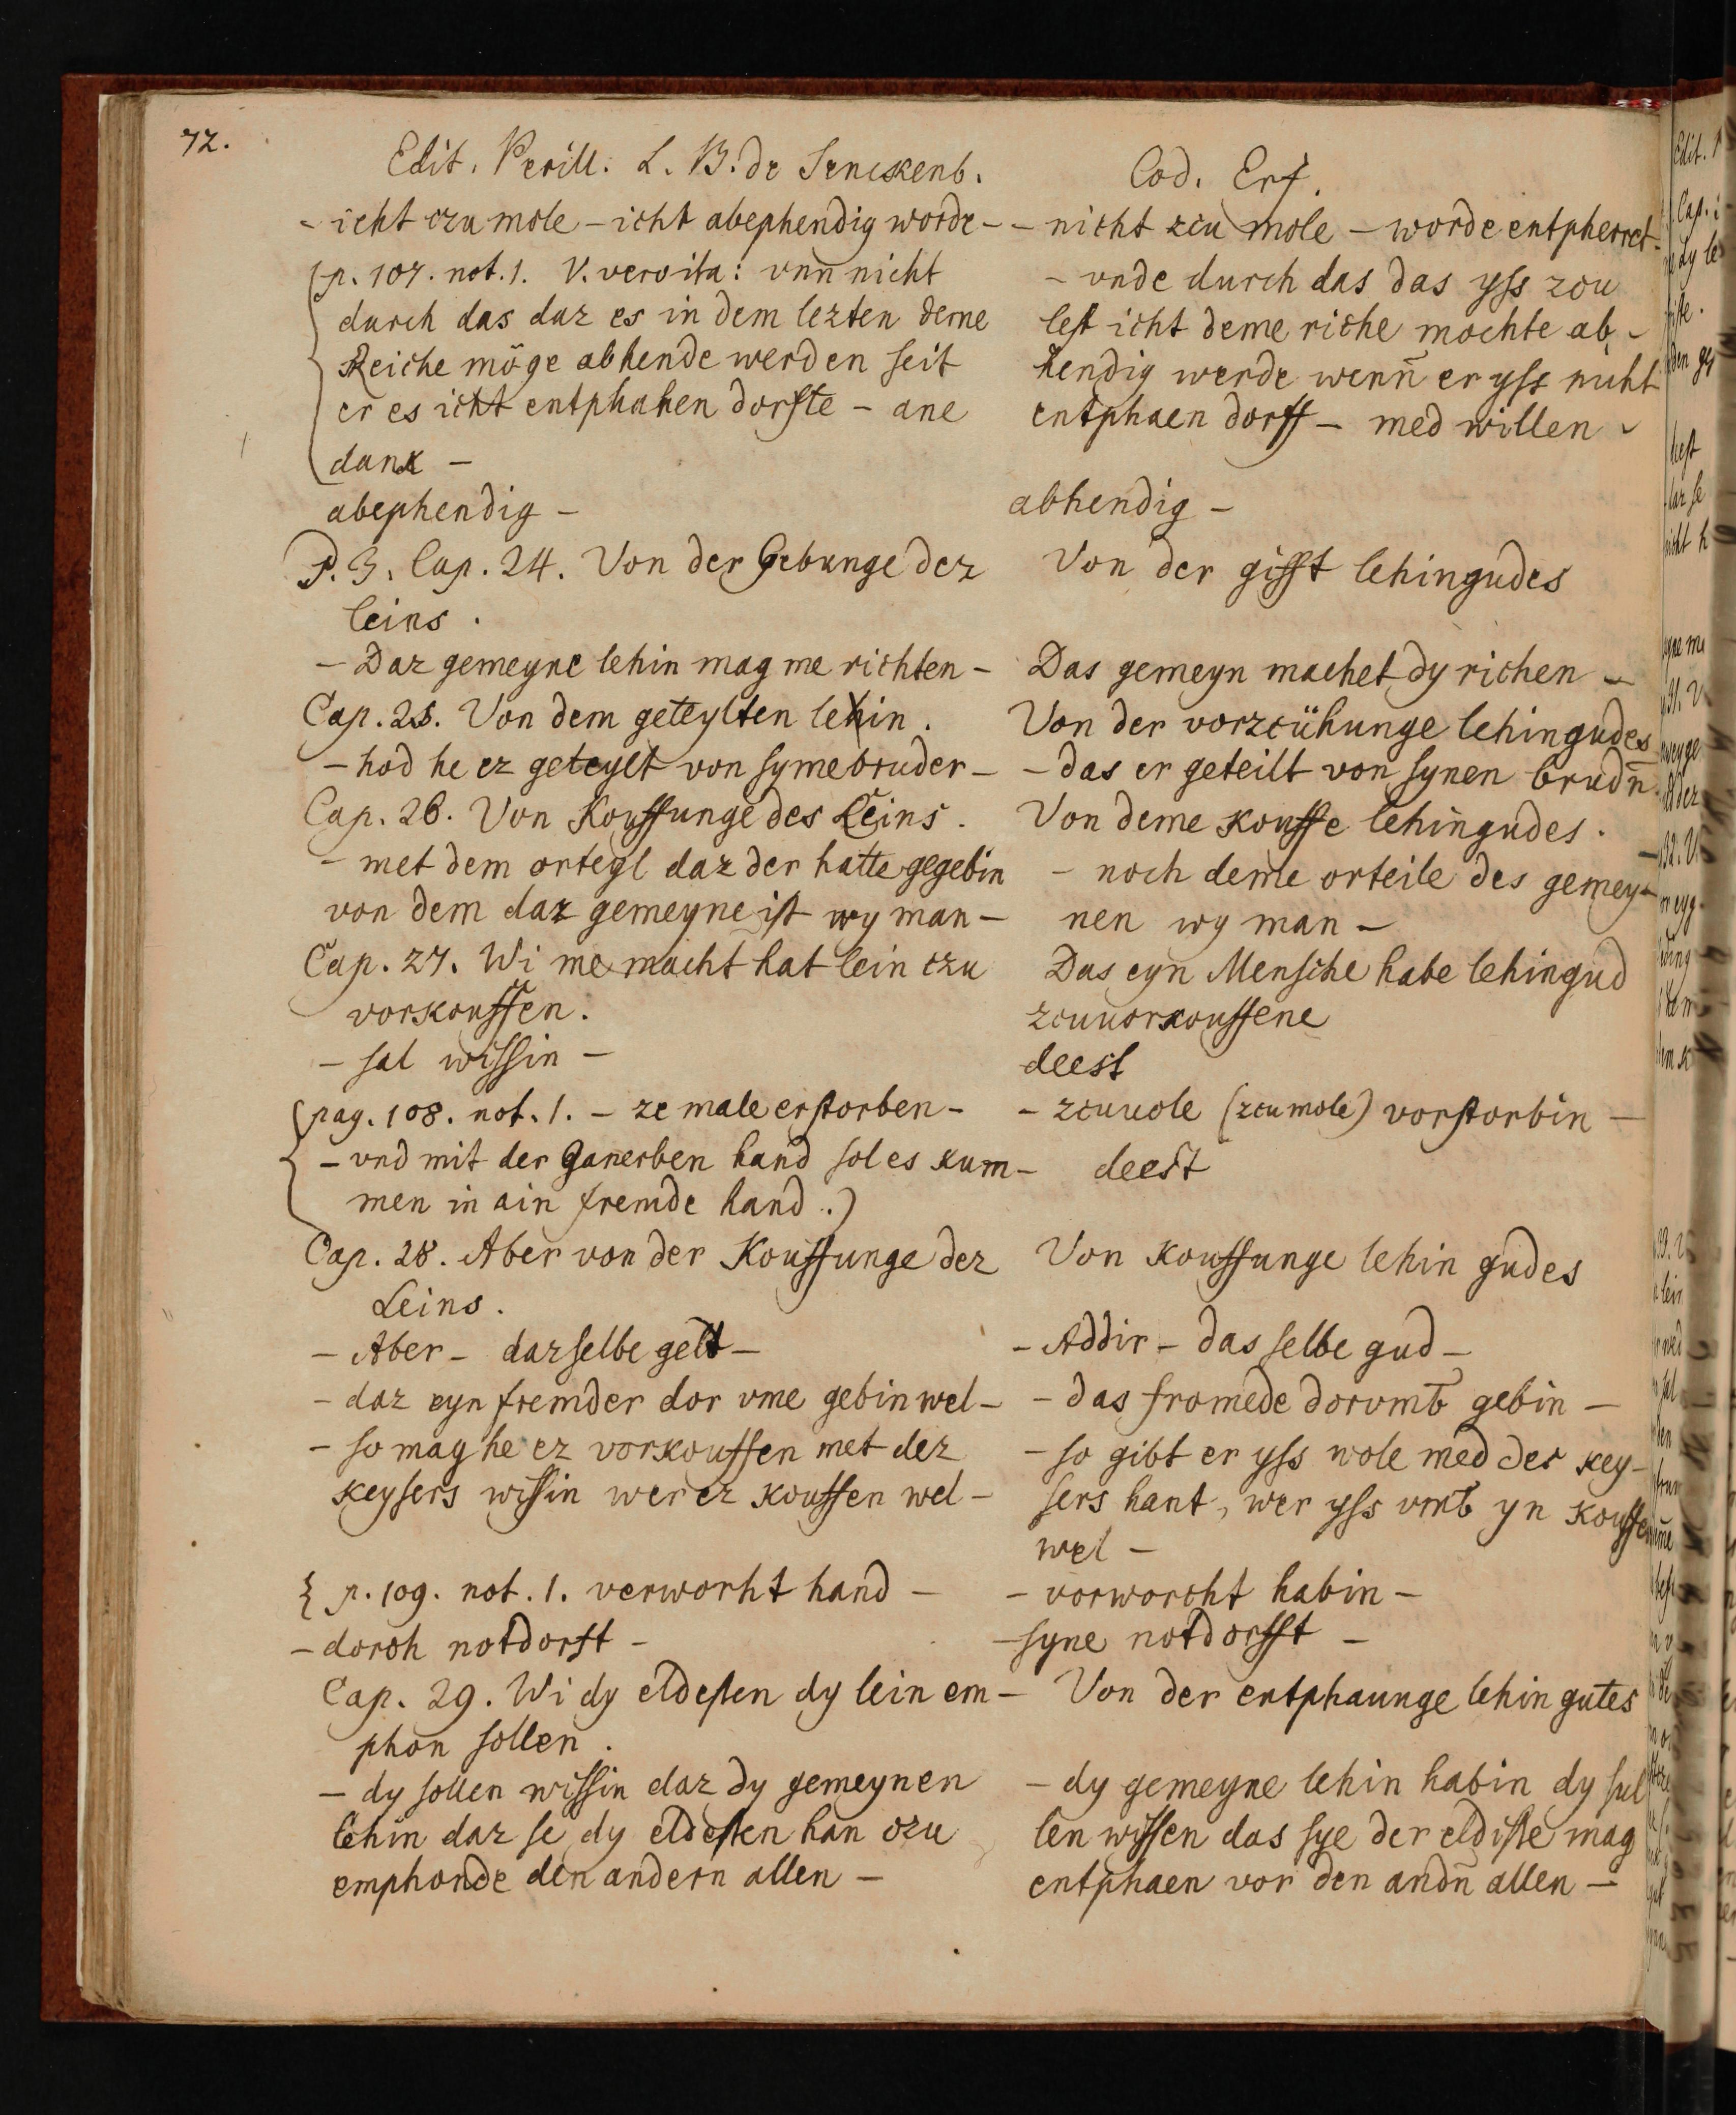 72.
Edit. Perill. L. B. de Senckenb.
- icht czu mole - icht abephendig worde -
(p. 107. not. 1. V. vervita: vnn nicht
durch das daz es in dem lezten deme
Reiche möge abhende werden seit
er es icht entphahen dorfte - ane
dank -
abephendig -
P. 3. Cap. 24. Von der Gebunge dez
leins.
- Daz gemeyne lehin mag me richten -
Cap. 25. Von dem geteylten lehin.
- hod he ez geteylt von syme bruder -
Cap. 26. Von Kouffunge des Leins.
- met dem orteyl daz der hatte gegebin
von dem daz gemeyne ist wy man -
Cap. 27. Wi me macht hat lein czu
vorkouffen.
- sal wissin -
(pag. 108. not. 1. - ze male erstorben -
- vnd mit der Ganerben hand sol es kum-
men in ain fremde hand.)
Cap. 28. Aber von der Kouffunge dez
Leins.
- Aber - dazselbe gelt -
- daz eyn fremder dor vme gebin wel -
- so mag he ez vorkouffen met dez
keysers wissin wer ez kouffen wel -
{ p. 109. not. 1. verworht hand -
- dorch notdorft -
Cap. 29. Wi dy eldesten dy lein em-
phon sollen.
- dy sollen wissin daz dy gemeynen
lehin daz se dy eldesten han czu
emphonde den andern allen -
Cod. Erf.
- nicht zcu mole - worde entpherret -
- vnde durch das das yss zcu
lest icht deme riche mochte ab-
hendig werde wenn̄ er yss nicht
entphaen dorff - med willen -
abhendig -
Von der gifft lehingudes
Das gemeyn machet dy richen -
Von der vorzcühunge lehingudes
- das er geteilt von synen brudn̄
Von deme kouffe lehingudes.
- noch deme orteile des gemey-
nen wy man -
Das eyn Mensche habe lehingud
zcuuorkouffene
deest
- zcuuole (zcumole) vorstorbin -
deest
Von kouffunge lehin gudes
- Addir - das selbe gud -
- das fromede dorvmb̄ gebin -
- so gibt er yss wole med des key-
sers hant, wer yss vmb̄ yn kouffen
wel -
- vorworcht habin -
- syne notdorfft -
Von der entphaunge lehin gutes
- dy gemeyne lehin habin dy sul
len wissen das sye der eldiste mag
entphaen vor den andn̄ allen -